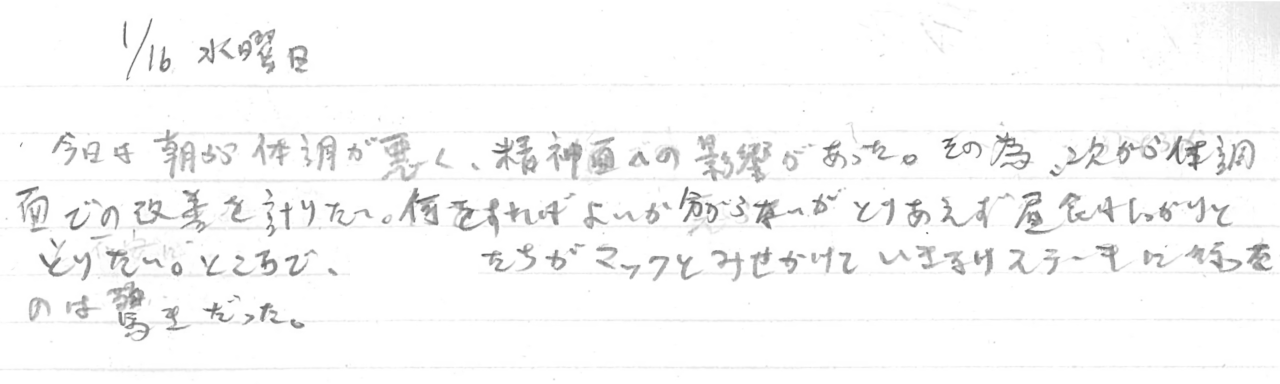 1/16 水曜日
今日は朝から体調が悪く、精神面への影響があった。その為、次から体調
面での改善を計りたい。何をすればよいか分からないがとりあえず昼食はしっかりと
とりたい。ところで、 たちがマックとみせかけていきなりステーキに行った
のは驚きだった。